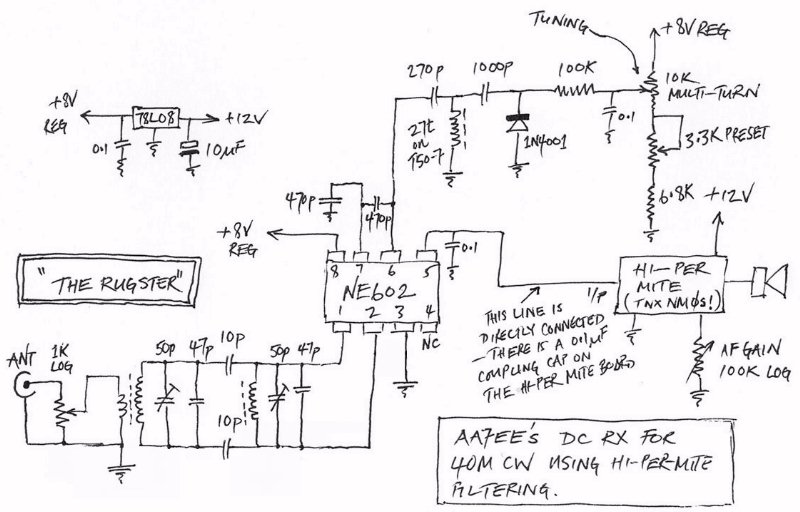 TUNING
+8V REG
270p
1000p
100K
10K
MULTI-TURN
+8V
REG
78L08
+12V
0.1
10µF
27t
on
T50-7
1N4001
0.1
3.3K PRESET
6.8K
+12V
470p
470p
+8V
REG
8 7 6 5
NE602
1 2 3 4
NC
0.1
"THE RUGSTER"
I/P
HI-PER
MITE
(TNX NM0S!)
THIS LINE IS
DIRECTLY CONNECTED
- THERE IS A 0.1µF
COUPLING CAP ON
THE HI-PER MITE BOARD
AF GAIN
100K LOG
ANT
1K
LOG
50p
47p
10p
50p
47p
10p
AA7EE'S DC RX FOR
40M CW USING HI-PER-MITE
FILTERING.